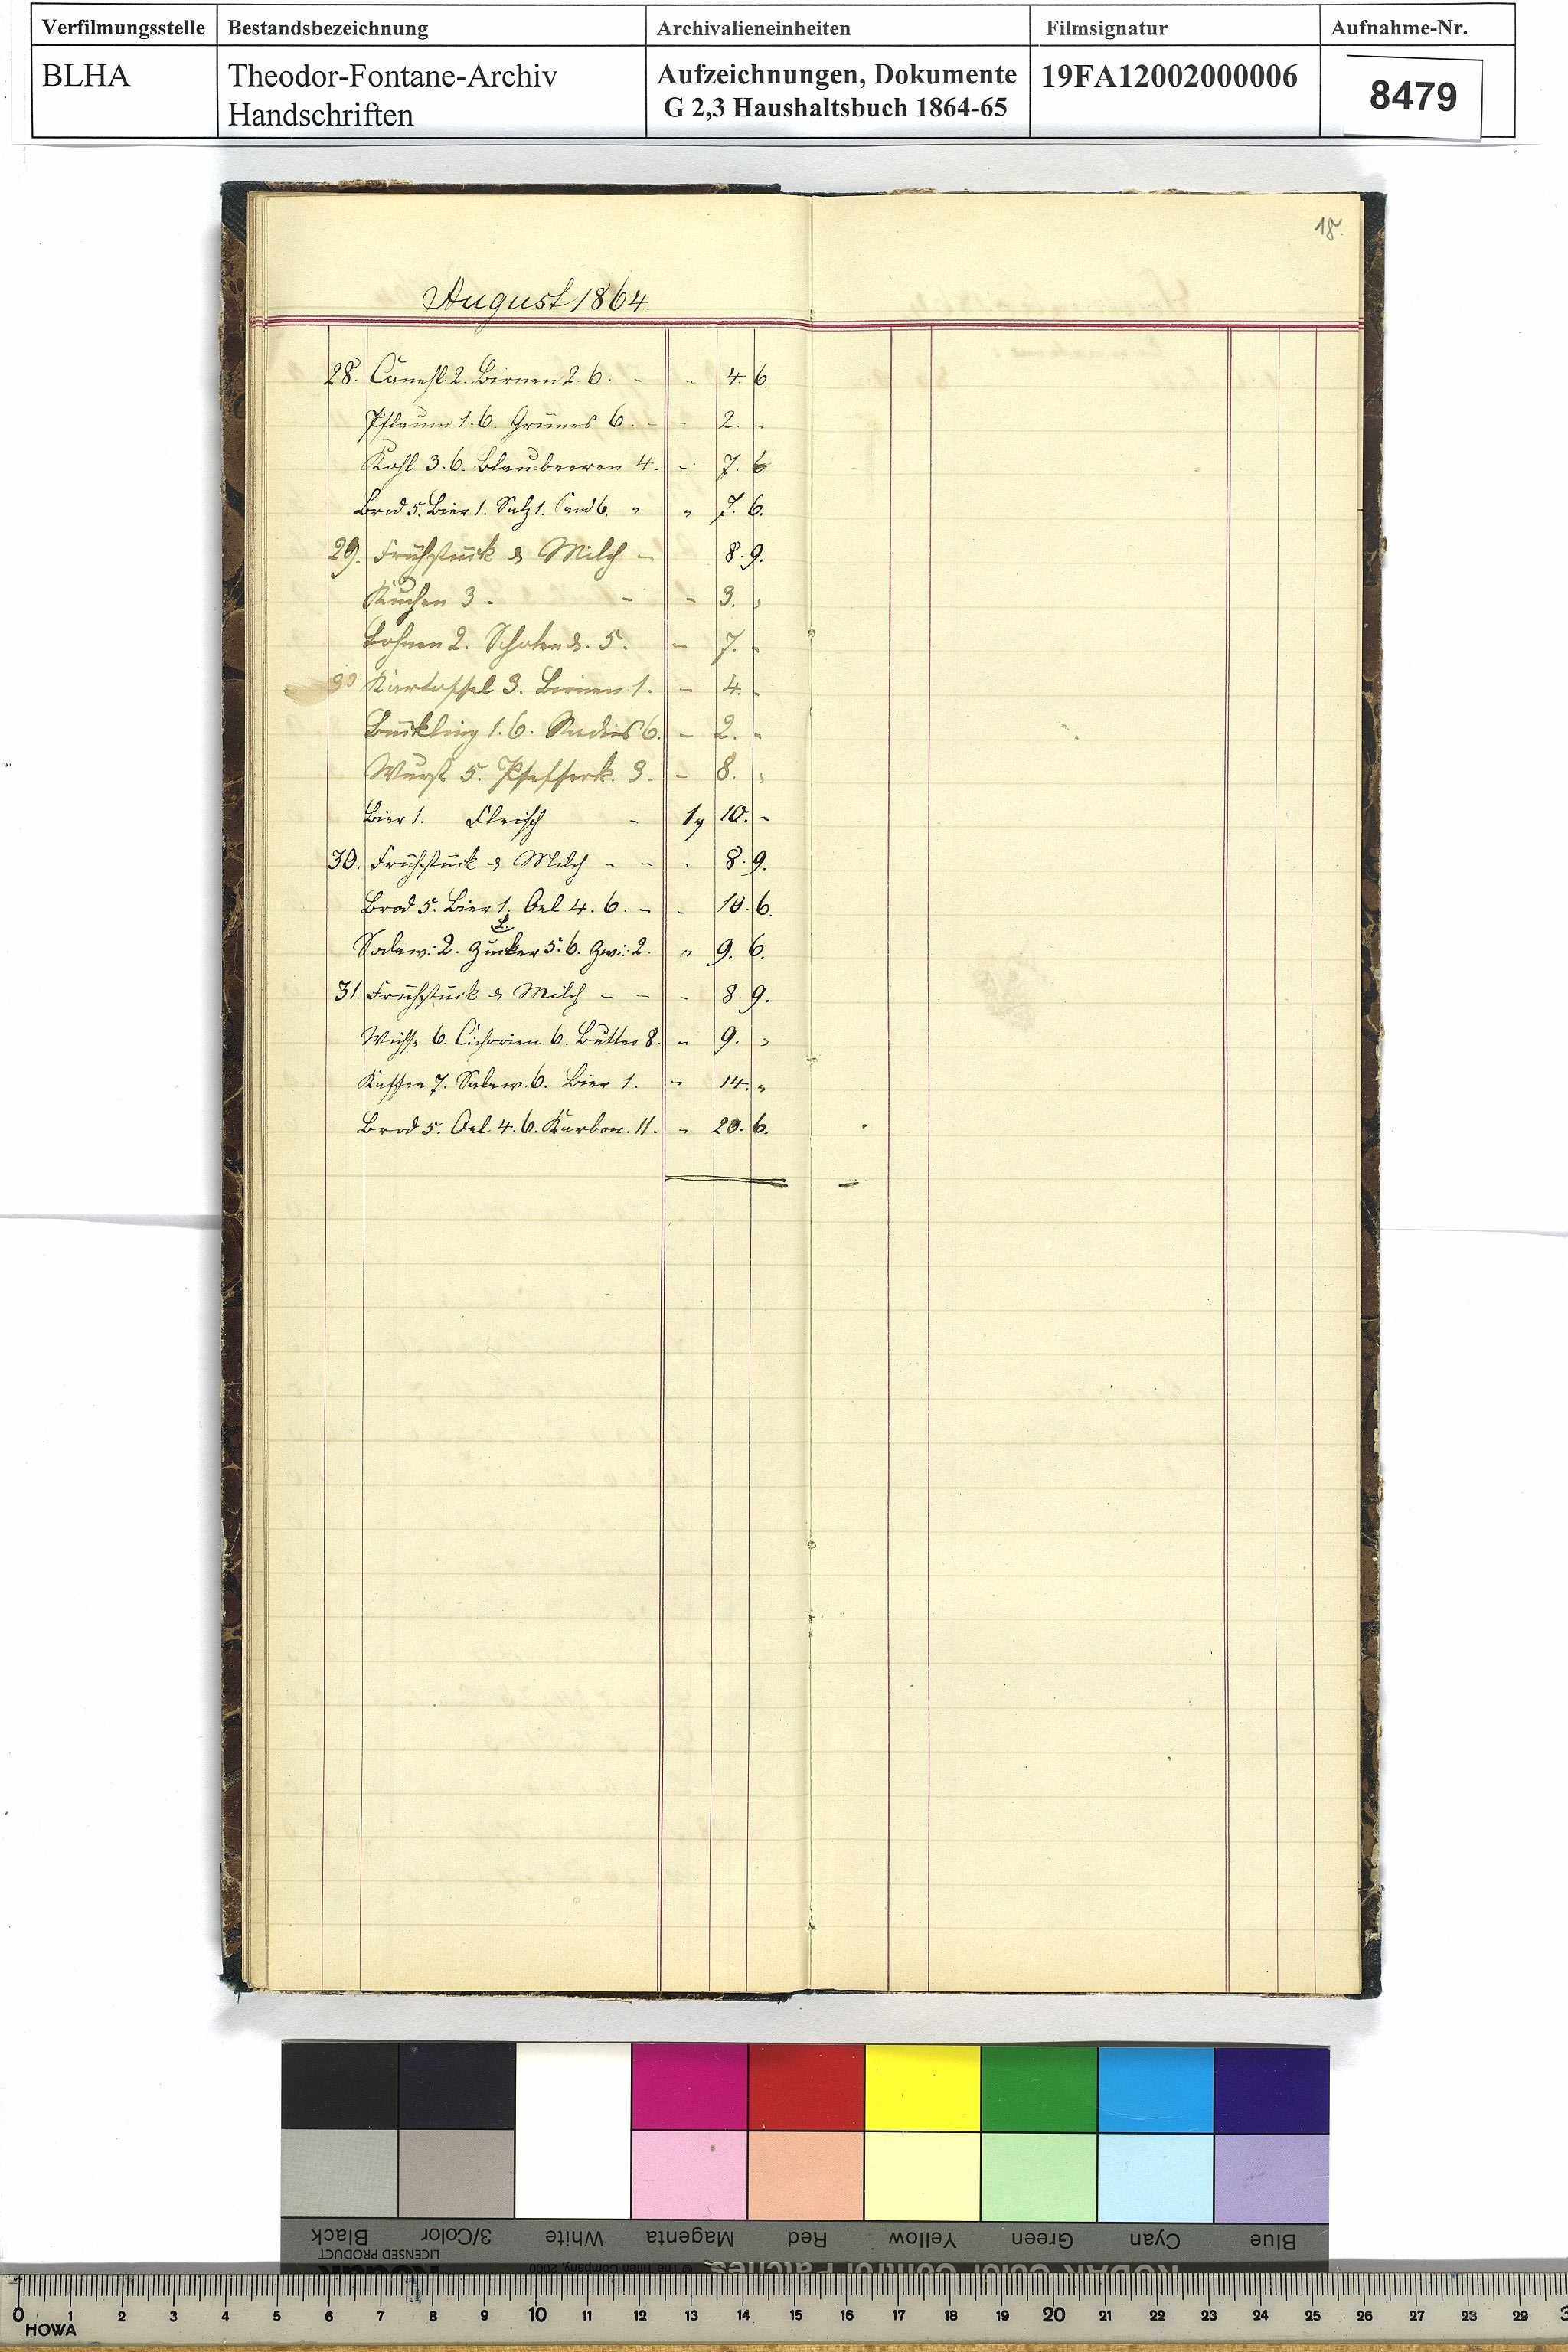 Verfilmungsstelle Bestandsbezeichnung Archivalieneinheiten Filmsignatur Aufnahme-Nr.
BLHA Theodor-Fontane-Archiv Handschriften Aufzeichnungen, Dokumente G 2,3 Haushaltsbuch 1864-65 19FA12002000006 8479
18.
August 1864.
28. Canehl 2. Birnen 2. 6. - - 4. 6.
Pflaum 1. 6. Grünes 6. - - 2. -
Kohl 3. 6. Blaubeeren 4. - 7. 6.
Brod 5. Bier 1. Salz 1. Sand 6. " " 7. 6.
29. Frühstück & Milch - 8. 9.
Kuchen 3. - - 3. "
Bohnen 2. Schoten 5. - 7. -
30 Kartoffel 3. Birnen 1. - 4. -
Bückling 1. 6. Radies 6. - 2. "
Wurst 5. Pfefferk. 3. - 8. "
Bier 1. Fleisch - 1 10. -
30. Frühstück & Milch - - - 8. 9.
Brod 5. Bier 1. Oel 4. 6. - - 10. 6.
Sodaw: 2. Zucker 5. 6. Zwi: 2. " 9. 6.
31. Frühstück & Milch - - - 8. 9.
Wichse 6. Cichorien 6. Butter 8. - 9. "
Kaffee 7. Sodaw. 6. Bier 1. - 14. "
Brod 5. Oel 4. 6. Karbon. 11. " 20. 6.
Black 3/Color White Magenta Red Yellow Green Cyan Blue
LICENSED PRODUCT
Kodak © The Tiffen Company, 2000 KODAK Color Control Patches
0 1 2 3 4 5 6 7 8 9 10 11 12 13 14 15 16 17 18 19 20 21 22 23 24 25 26 27 28 29 3
HOWA